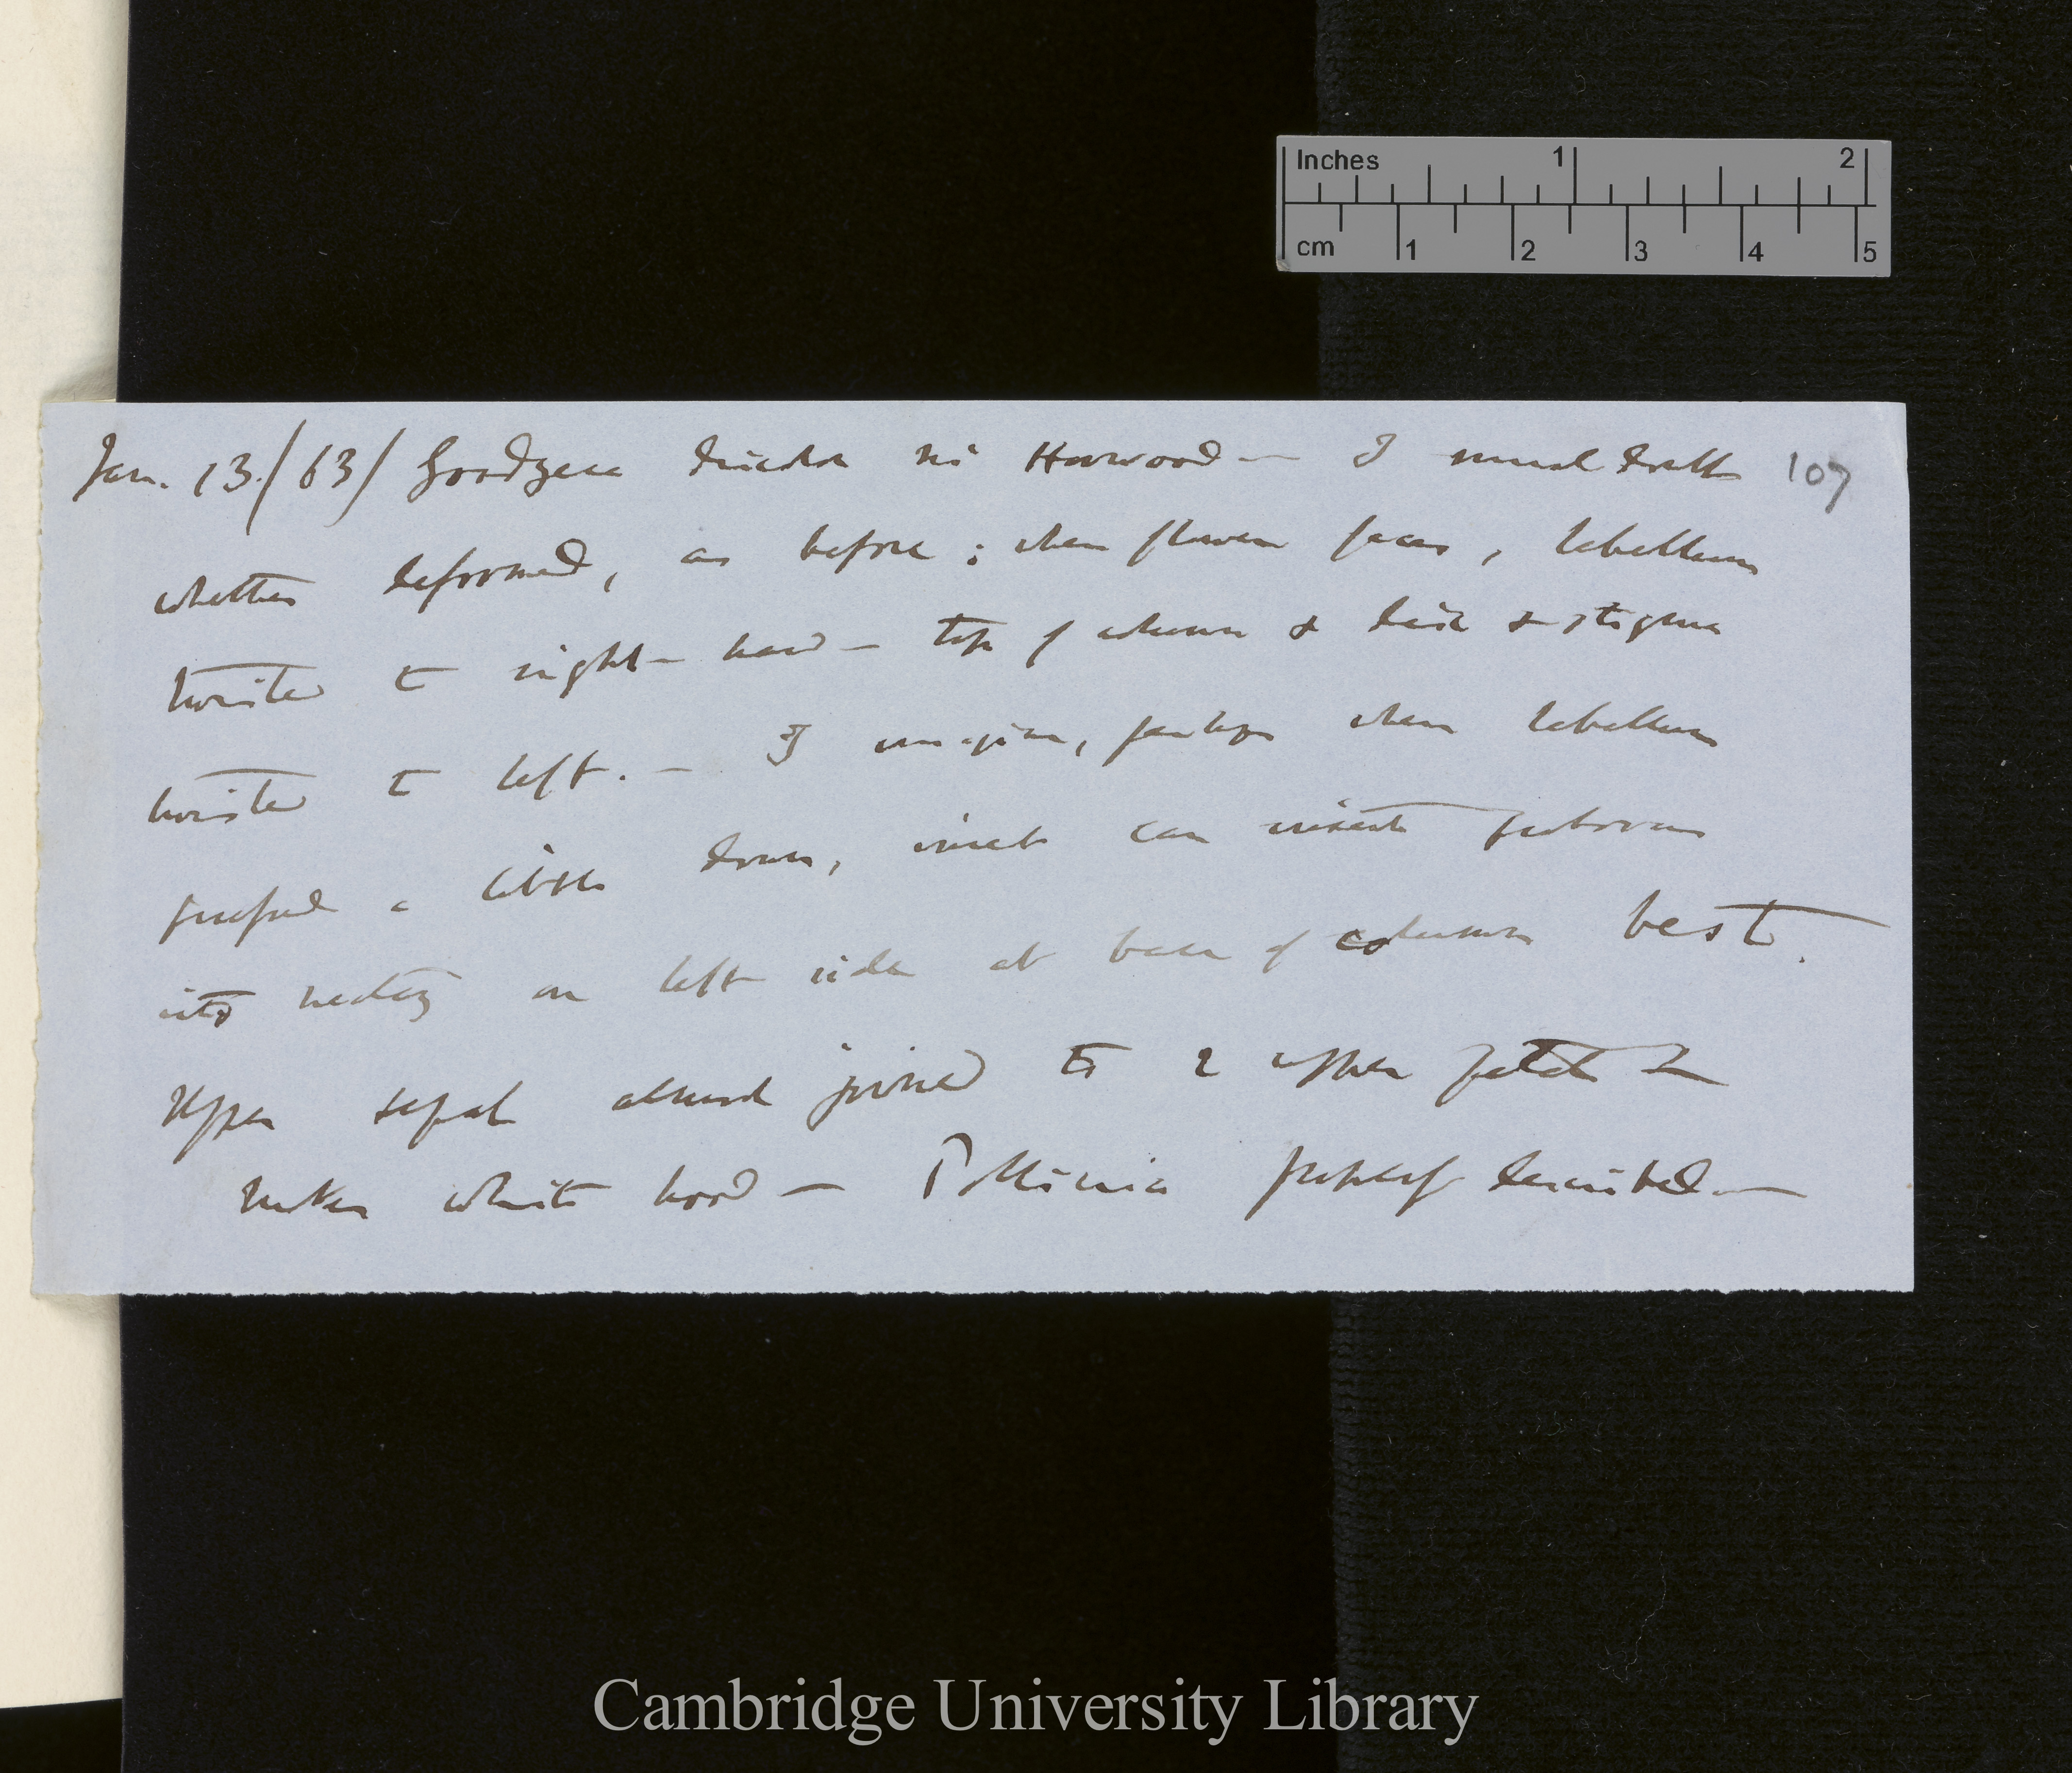 Inches 1 2
cm 1 2 3 4 5
Jan. 13/63/ Goodyera discolor Mr Horwood — I much doubt 107
whether deformed, as before; when flower faces, labellum
twisted to right-hand — top of column & & stigma
twisted to left. — I imagine, perhaps when labellum
pushed a little down, insect can insert proboscis
into nectary on left side at base of column best.
Upper sepal almost joined to 2 upper petals &
makes white hood — Pollinia properly described —
Cambridge University Library